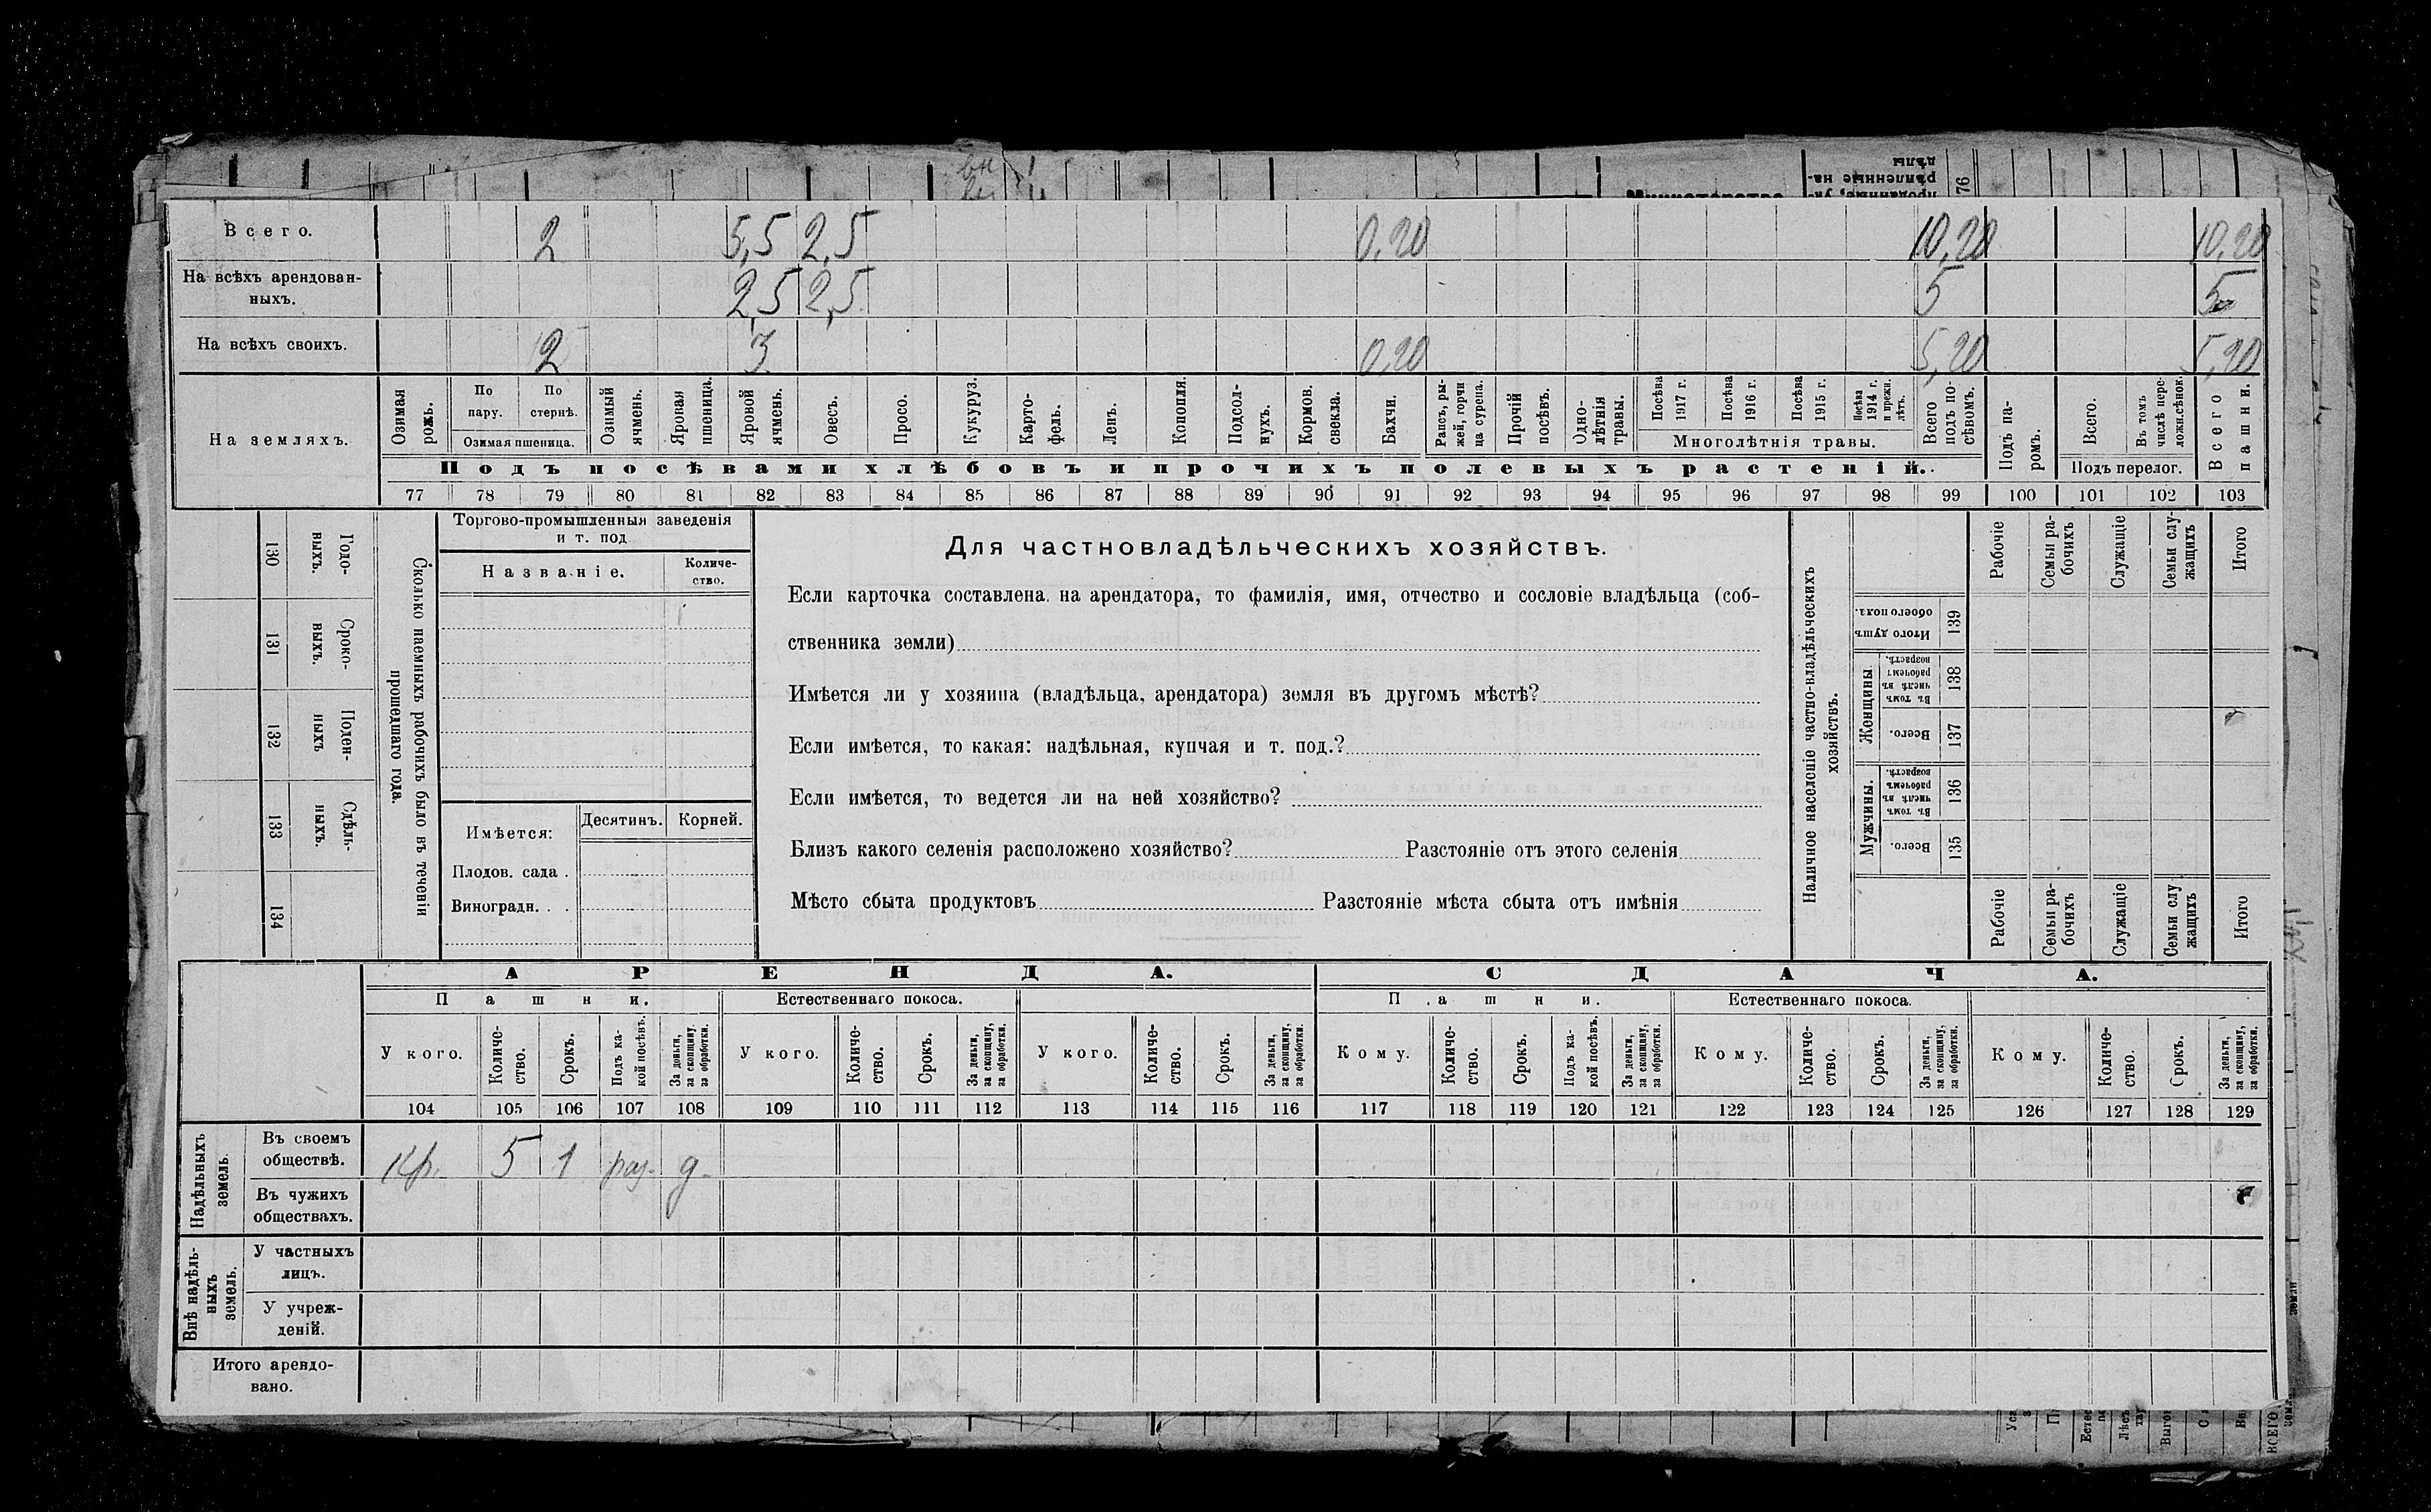 Всего. 2 5,5 2,5 0,20 10,20 10,20
На всѣхъ арендован-
ныхъ. 2,5 2,5 5 5
На всѣхъ своихъ. 2 3 0,20 5,20 5,20
На земляхъ.
Озимая рожь.
По пару.
По стернѣ.
Озимая пшеница.
Озимый ячмень.
Яровая пшеница.
Яровой ячмень.
Овесъ.
Просо.
Кукуруз.
Карто-
фель.
Ленъ.
Конопля.
Подсол-
нухъ.
Кормов. свекла.
Бахчи.
Рапсъ, ры-
жей, горчи
ца сурепа.
Прочій посѣвъ.
Одно-
лѣтнія травы.
Посѣва 1917 г.
Посѣва 1916 г.
Посѣва 1915 г.
Посѣва 1914 г. и прежн. лѣтъ.
Многолѣтнія травы.
Всего подъ по-
сѣвомъ.
Подъ посѣвами хлѣбовъ и прочихъ полевыхъ растеній.
Подъ па-
ромъ.
Всего.
Въ томъ числѣ пере-
ложн.сѣнок.
Подъ перелог.
Всего пашни.
77 78 79 80 81 82 83 84 85 86 87 88 89 90 91 92 93 94 95 96 97 98 99 100 101 102 103
130 Годо-
выхъ.
131 Сроко-
выхъ.
132 Поден-
ныхъ
133 Сдѣль-
ныхъ.
134
Сколько наемныхъ рабочихъ было въ теченіи
прошедшаго года.
Торгово-промышленныя заведенія
и т. под
Названіе.
Количе-
ство.
Имѣется: Десятинъ. Корней.
Плодов. сада .
Виноградн. . .
Для частновладѣльческихъ хозяйствъ.
Если карточка составлена на арендатора, то фамилія, имя, отчество и сословіе владѣльца (соб-
ственника земли)
Имѣется ли у хозяина (владѣльца, арендатора) земля въ другомъ мѣстѣ?
Если имѣется, то какая: надѣльная, купчая и т. под.?
Если имѣется, то ведется ли на ней хозяйство?
Близъ какого селенія расположено хозяйство? Разстояніе отъ этого селенія
Мѣсто сбыта продуктовъ Разстояніе мѣста сбыта отъ имѣнія
Наличное населеніе частно-владѣльческихъ
хозяйствъ.
Рабочіе
Семьи ра-
бочихъ
Служащіе
Семьи слу-
жащихъ
Итого
Итого душъ
обоего пола.
139
Женщины
Въ томъ числѣ въ рабочемъ возрастѣ.
138
Всего.
137
Мужчины.
Въ томъ числѣ въ рабочемъ возрастѣ.
136
Всего.
135
Рабочіе
Семьи ра-
бочихъ
Служащіе
Семьи слу
жащихъ
Итого
АРЕНДА. СДАЧА.
Пашни. Естественнаго покоса. Пашни. Естественнаго покоса.
У кого.
Количе-
ство.
Срокъ.
Подъ ка-
кой посѣвъ.
За деньги,
за скопщину,
за обработки.
У кого.
Количе-
ство.
Срокъ.
За деньги,
за скопщину,
за обработки.
У кого.
Количе-
ство.
Срокъ.
За деньги,
за скопщину,
за обработки.
Кому.
Количе-
ство.
Срокъ.
Подъ ка-
кой посѣвъ.
За деньги,
за скопщину,
за обработки.
Кому.
Количе-
ство.
Срокъ.
За деньги,
за скопщину,
за обработки.
Кому.
Количе-
ство.
Срокъ.
За деньги,
за скопщину,
за обработки.
104 105 106 107 108 109 110 111 112 113 114 115 116 117 118 119 120 121 122 123 124 125 126 127 128 129
Надѣльныхъ
земель.
Въ своемъ
обществѣ. Кр. 5 1 раз. д.
Въ чужихъ
обществахъ.
Внѣ надѣль-
ныхъ
земель.
У частныхъ
лицъ.
У учреж-
деній.
Итого арендо-
вано.